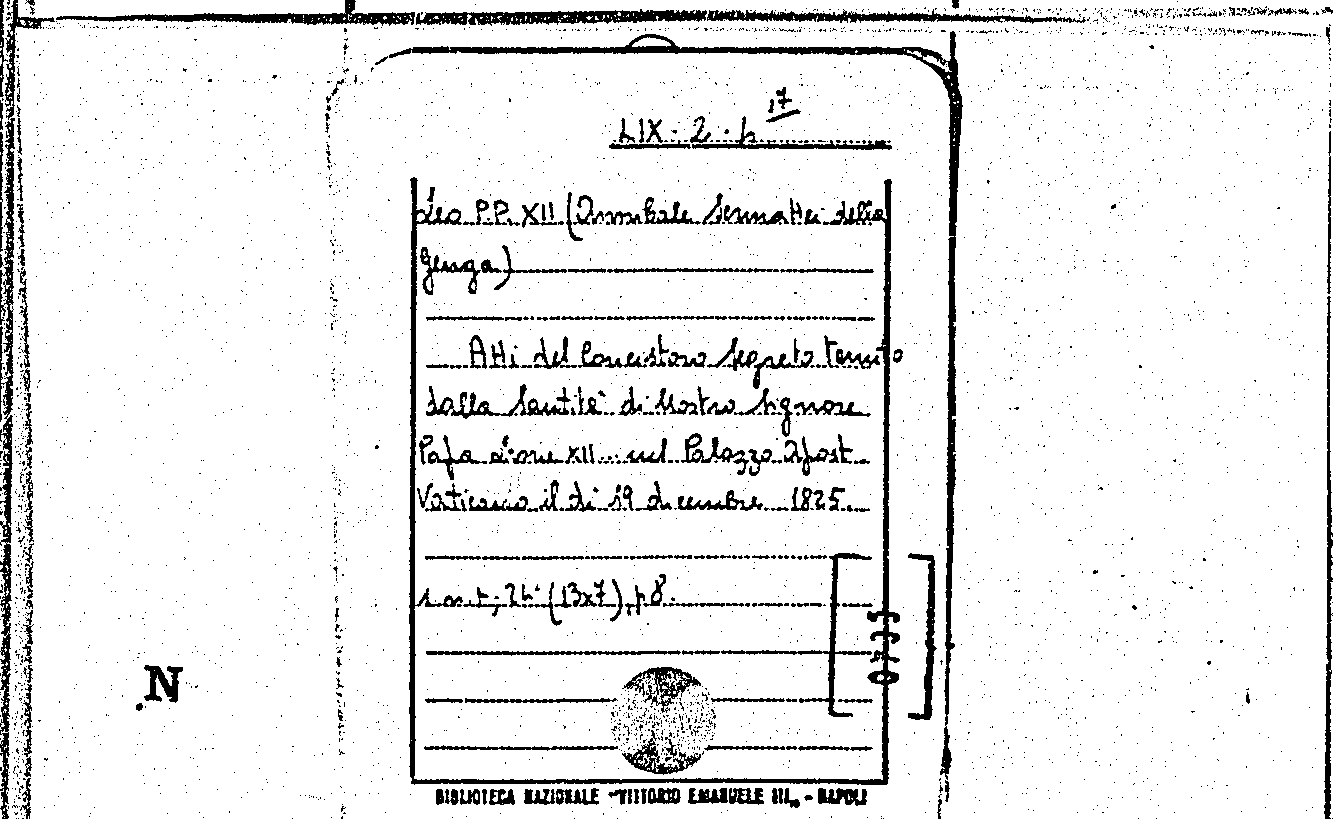 LIX. 2. h 17
Leo P.P. XII (Annibale Sermattei della
Genga)
Atti del Concistoro segreto tenuto
dalla Santità di Nostro Signore
Papa Leone XII... nel Palazzo Apost.
Vaticano il dì 19 dicembre 1825.
s.n.t; 24° (13x7), p 8.
N
BIBLIOTECA NAZIONALE "VITTORIO EMANUELE III„ - NAPOLI